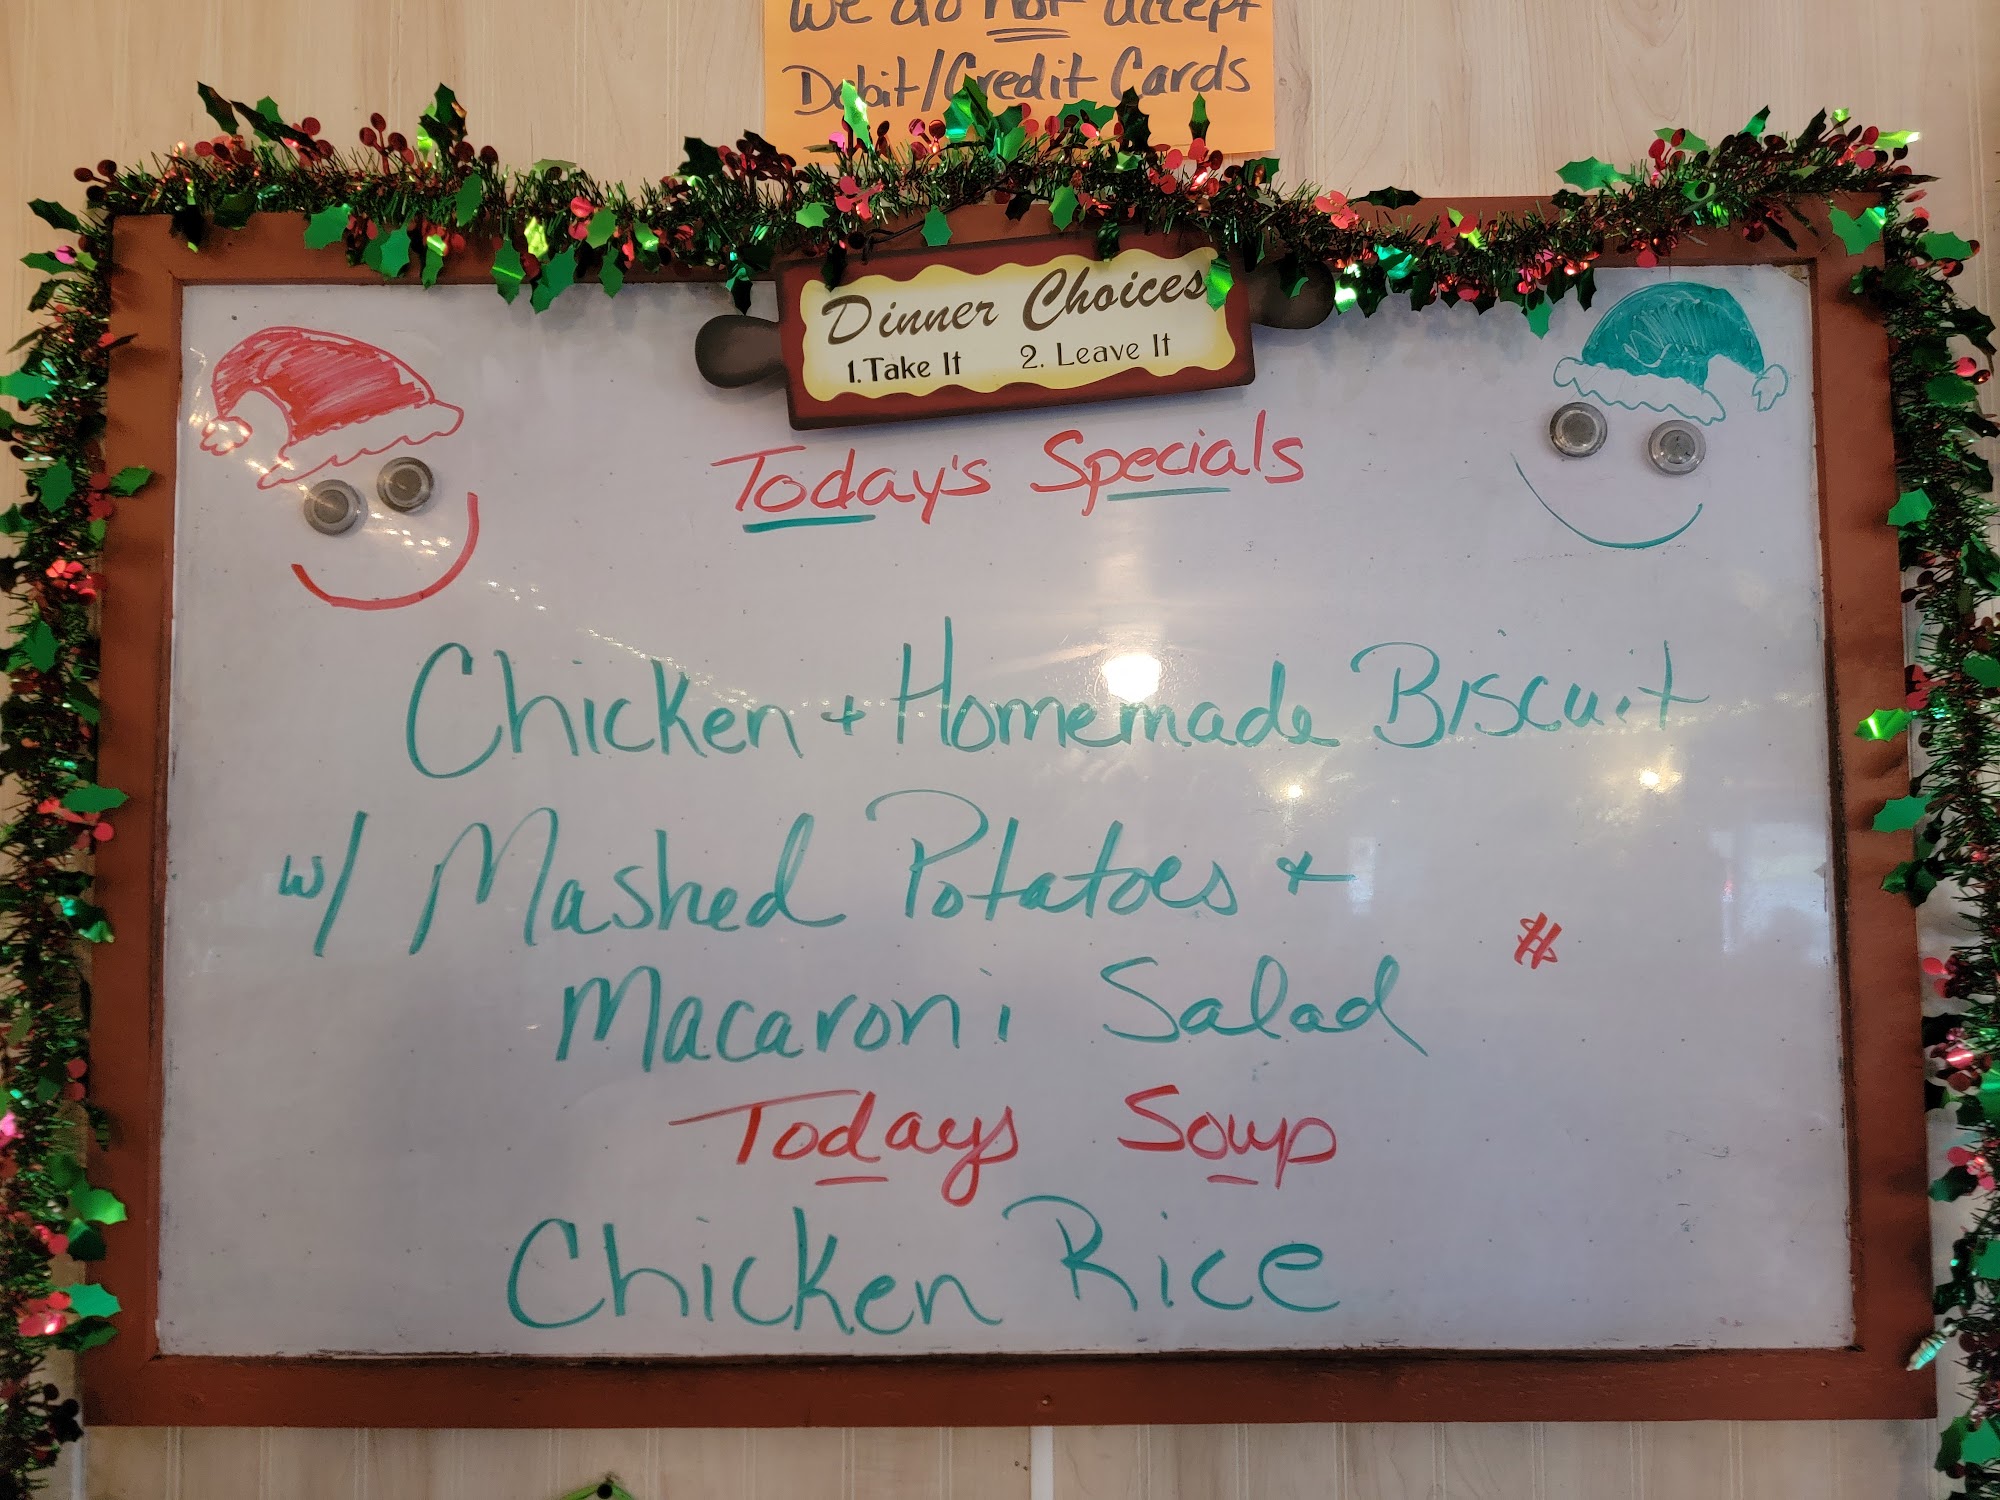 We do not accept
Debit/Credit Cards
Dinner Choices
1. Take It 2. Leave It
Today's Specials
Chicken + Homemade Biscuit
w/ Mashed Potatoes +
$
Macaroni Salad
Todays Soup
Chicken Rice